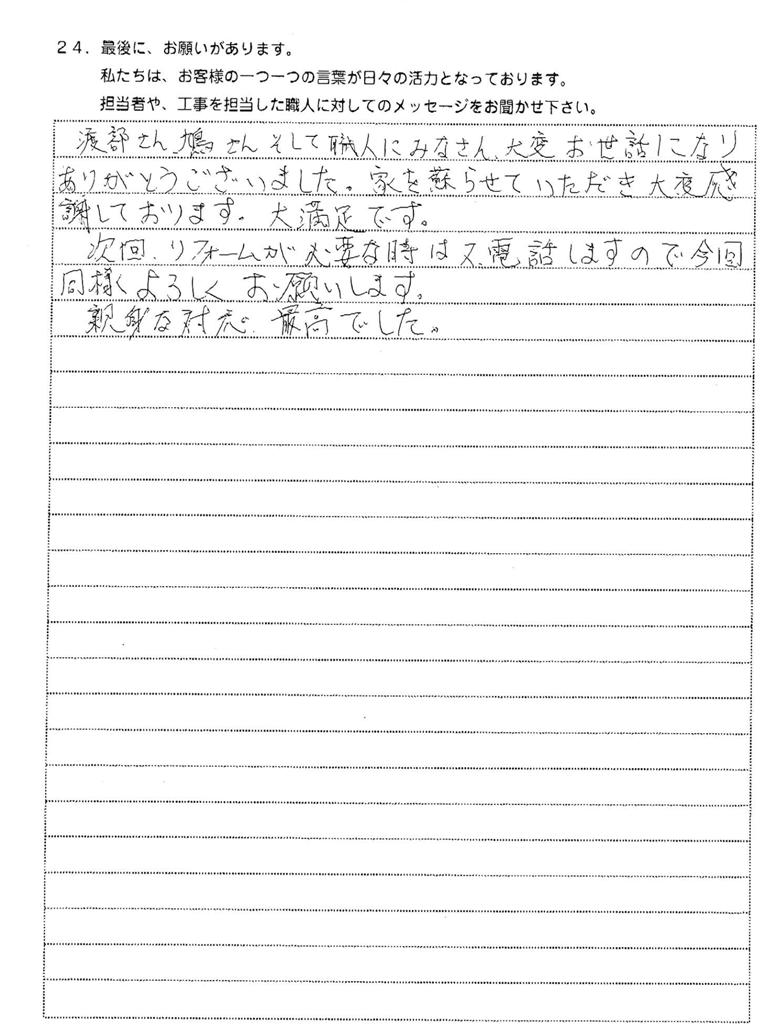 24．最後に、お願いがあります。
私たちは、お客様の一つ一つの言葉が日々の活力となっております。
担当者や、工事を担当した職人に対してのメッセージをお聞かせ下さい。
渡部さん、鳩さん そして職人にみなさん、大変お世話になり
ありがとうございました。家を蘇らせていただき大変感
謝しております。大満足です。
次回、リフォームが必要な時は又電話しますので今回
同様くよろしくお願いします。
親身な対応、最高でした。